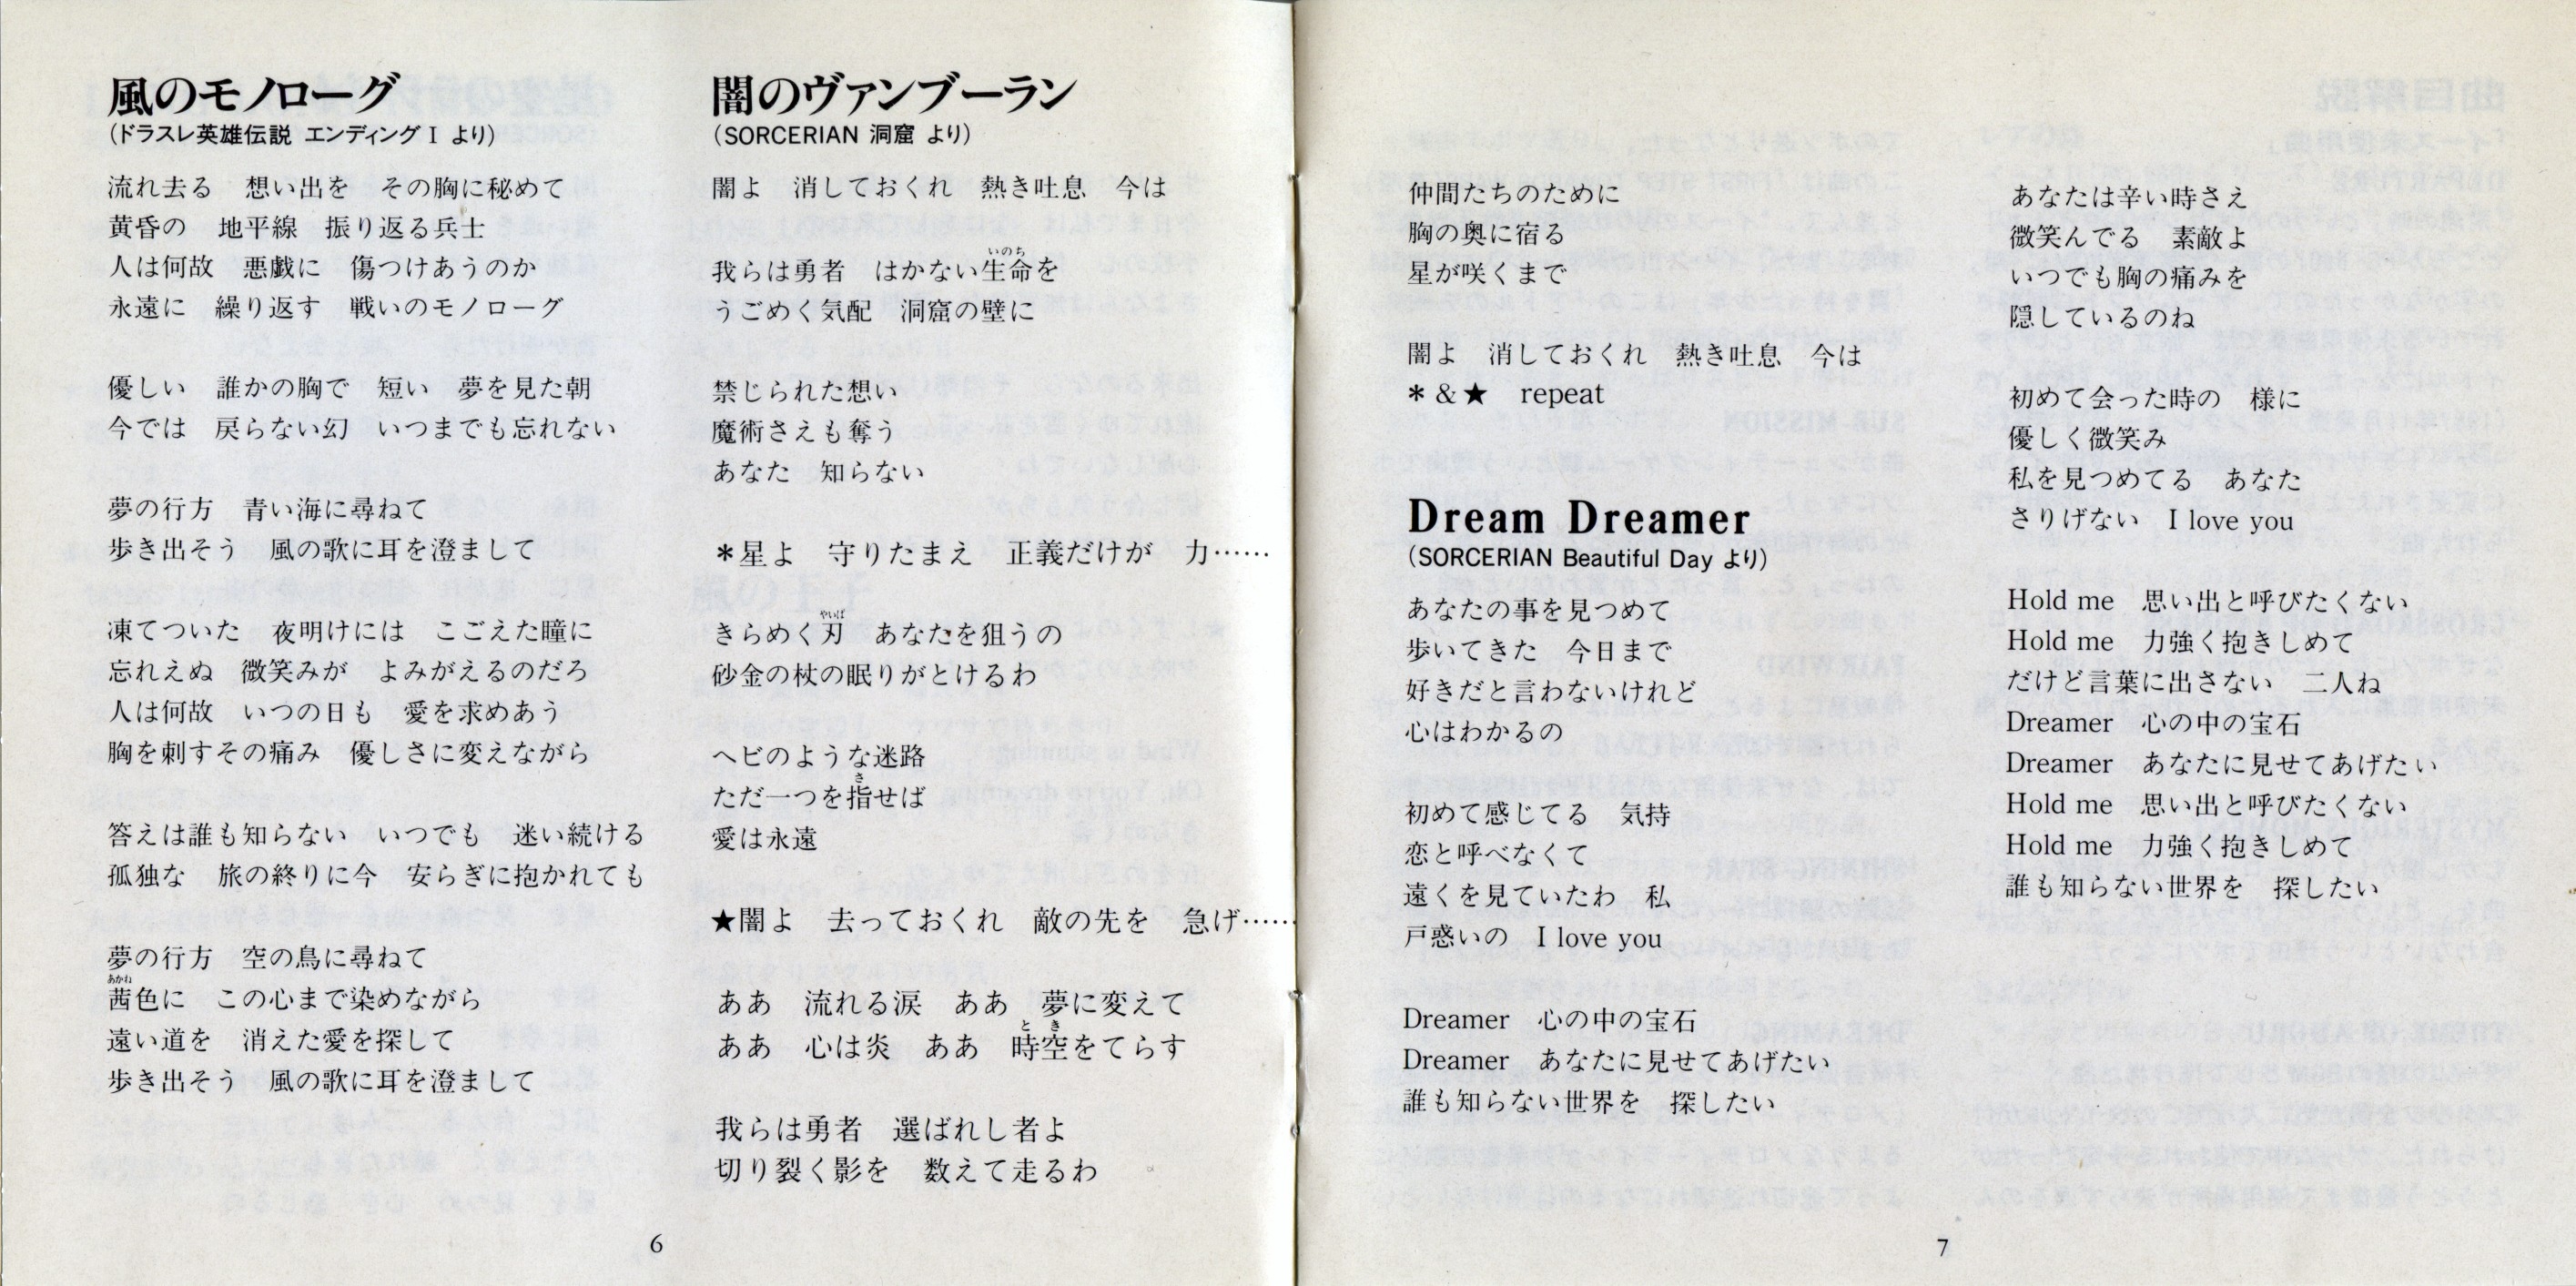 風のモノローグ
(ドラスレ英雄伝説 エンディングI より)
流れ去る 想い出を その胸に秘めて
黄昏の 地平線 振り返る兵士
人は何故 悪戯に 傷つけあうのか
永遠に 繰り返す 戦いのモノローグ
優しい 誰かの胸で 短い 夢を見た朝
今では 戻らない幻 いつまでも忘れない
夢の行方 青い海に尋ねて
歩き出そう 風の歌に耳を澄まして
凍てついた 夜明けには こごえた瞳に
忘れえぬ 微笑みが よみがえるのだろ
人は何故 いつの日も 愛を求めあう
胸を刺すその痛み 優しさに変えながら
答えは誰も知らない いつでも 迷い続ける
孤独な 旅の終りに今 安らぎに抱かれても
夢の行方 空の鳥に尋ねて
あかね
茜色に この心まで染めながら
遠い道を 消えた愛を探して
歩き出そう 風の歌に耳を澄まして
闇のヴァンブーラン
(SORCERIAN 洞窟 より)
闇よ 消しておくれ 熱き吐息 今は
いのち
我らは勇者 はかない生命を
うごめく気配 洞窟の壁に
禁じられた想い
魔術さえも奪う
あなた 知らない
*星よ 守りたまえ 正義だけが 力……
やいば
きらめく刃 あなたを狙うの
砂金の杖の眠りがとけるわ
ヘビのような迷路
さ
ただ一つを指せば
愛は永遠
★闇よ 去っておくれ 敵の先を 急げ……
ああ 流れる涙 ああ 夢に変えて
とき
ああ 心は炎 ああ 時空をてらす
我らは勇者 選ばれし者よ
切り裂く影を 数えて走るわ
6
仲間たちのために
胸の奥に宿る
星が咲くまで
闇よ 消しておくれ 熱き吐息 今は
*&★ repeat
Dream Dreamer
(SORCERIAN Beautiful Day より)
あなたの事を見つめて
歩いてきた 今日まで
好きだと言わないけれど
心はわかるの
初めて感じてる 気持
恋と呼べなくて
遠くを見ていたわ 私
戸惑いの I love you
Dreamer 心の中の宝石
Dreamer あなたに見せてあげたい
誰も知らない世界を 探したい
あなたは辛い時さえ
微笑んでる 素敵よ
いつでも胸の痛みを
隠しているのね
初めて会った時の 様に
優しく微笑み
私を見つめてる あなた
さりげない I love you
Hold me 思い出と呼びたくない
Hold me 力強く抱きしめて
だけど言葉に出さない 二人ね
Dreamer 心の中の宝石
Dreamer あなたに見せてあげたい
Hold me 思い出と呼びたくない
Hold me 力強く抱きしめて
誰も知らない世界を 探したい
7